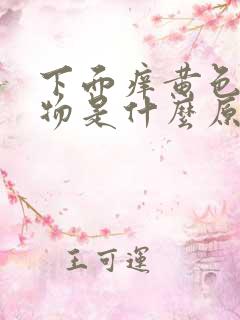 下面痒黄色
物是什麼原
王可運